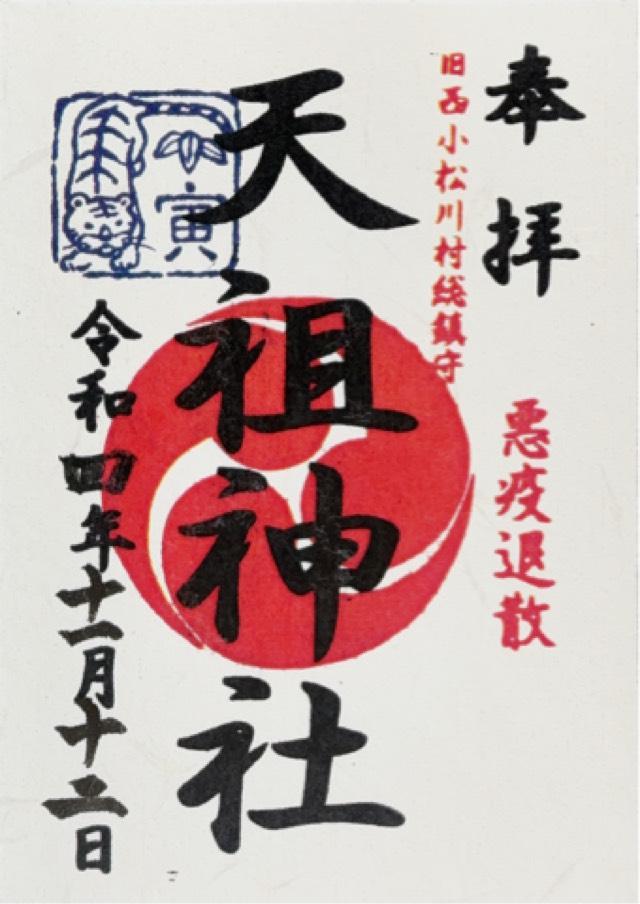 奉拝
旧西小松川村総鎮守
悪疫退散
天祖神社
寅
令和四年十一月十二日